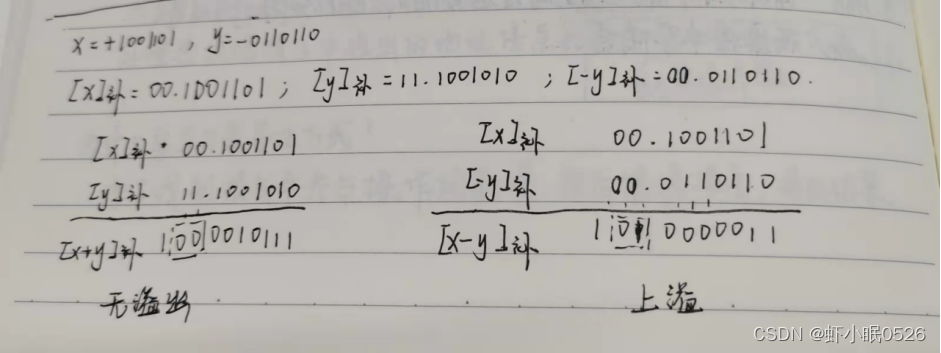 x=+1001101, y=-0110110
[x]补=00.1001101; [y]补=11.1001010; [-y]补=00.0110110.
[x]补 00.1001101
[y]补 11.1001010
[x+y]补 1 00 0010111
无溢出
[x]补 00.1001101
[-y]补 00.0110110
[x-y]补 1 01 0000011
上溢
CSDN @虾小眠0526